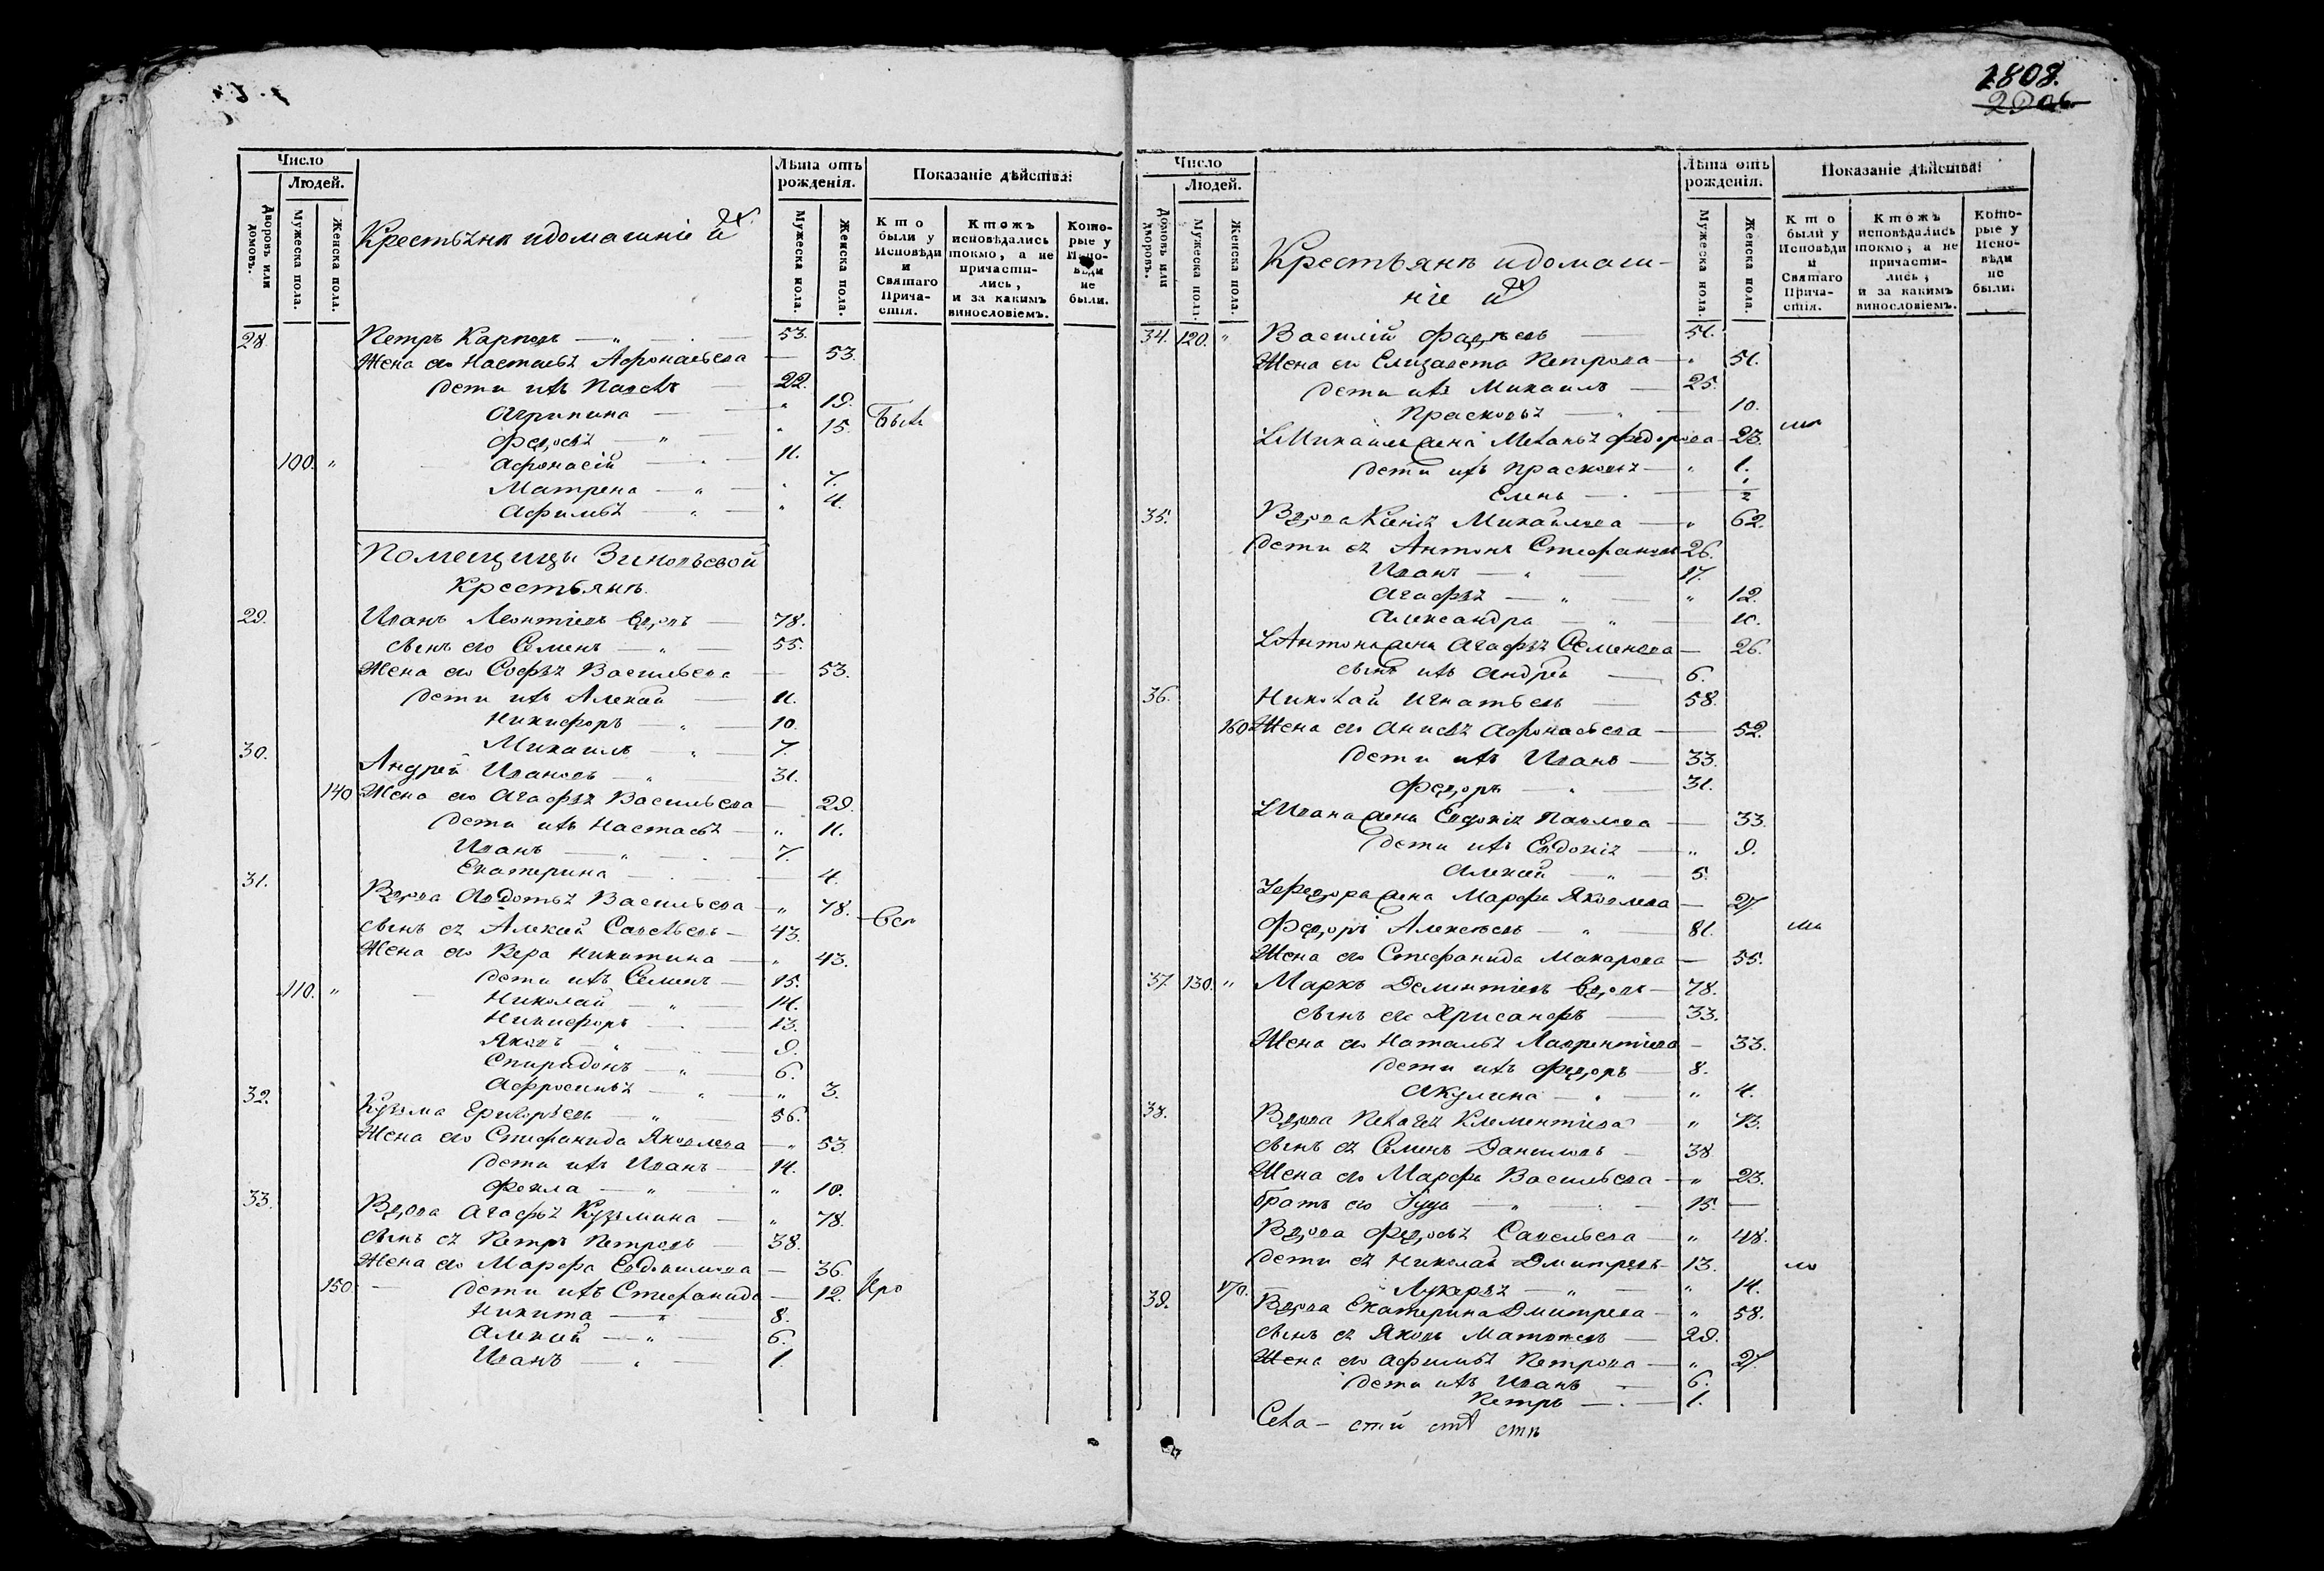 Число
Людей.
Дворовъ или домовъ.
Мужеска пола.
Женска пола.
Лѣта отъ рожденія.
Мужеска пола.
Женска пола.
Показаніе дѣйства:
Кто были у Исповѣди и Святаго Прича-стія.
Ктожъ исповѣдались токмо, а не причасти-лись, и за какимъ винословіемъ.
Кото-рые у Испо-вѣди не были.
Крестьяня идомашніе ихъ
28. Петръ Карповъ — 53.
Жена его Настасья Афонасьева — 53.
дети ихъ Павелъ — 22.
Агрипина — 19.
Федосья — 15. Были
100. Афонасій — 11.
Матрена — 7.
Афимья — 4.
Помещицы Зиновьевой
Крестьяне.
29. Иванъ Леонтіевъ вдовъ — 78.
сынъ его Семенъ — 55.
Жена его Софья Васильева — 53.
дети ихъ Алексей — 11.
Никифоръ — 10.
Михаилъ — 7.
30. Андрей Ивановъ — 31.
140 Жена его Агафья Васильева — 29.
дети ихъ Настасья — 11.
Иванъ — 7.
Екатерина — 4.
31. Вдова Авдотья Васильева — 78. Вси
сынъ ея Алексей Савельевъ — 43.
Жена его Вера Никитина — 43.
дети ихъ Семенъ — 15.
110. Николай — 14.
Никифоръ — 13.
Яковъ — 9.
Спиридонъ — 6.
Афросинья — 3.
32. Кузма Григорьевъ — 56.
Жена его Стефанида Яковлева — 53
дети ихъ Иванъ — 14.
Фекла — 10.
33. Вдова Агафья Кузмина — 78.
сынъ ея Петръ Петровъ — 38.
Жена его Марфа Евдокимова — 36.
150 дети ихъ Стефанида — 12. Про
Никита — 8.
Алексей — 6.
Иванъ — 1
1808.
Число
Людей.
Домовъ или дворовъ.
Мужеска пола.
Женска пола.
Лѣта отъ рожденія.
Мужеска пола.
Женска пола.
Показаніе дѣйства:
Кто были у Исповѣди и Святаго Прича-стія.
Ктожъ исповѣдались токмо, а не причасти-лись, и за какимъ винословіемъ.
Кото-рые у Испо-вѣди не были.
Крестьяне идомаш-
ніе ихъ
34. 120. Василій Фадѣевъ — 51.
Жена его Елизавета Петрова — 51.
дети ихъ Михаилъ — 25.
Прасковья — 10.
Михаила жена Меланья Федорова — 23.
дети ихъ Прасковья — 1.
Елена — 1/2
35. Вдова Ксенія Михайлова — 62.
дети ея Антонъ Стефановъ 26.
Иванъ — 17.
Агафья — 12.
Александра — 10.
Антона жена Агафья Семенова — 26.
сынъ ихъ Андрей — 6.
36. Николай Игнатьевъ — 58.
160 Жена его Анисья Афонасьева — 52.
дети ихъ Иванъ — 33.
Федоръ — 31.
Ивана жена Евдокія Павлова — 33.
дети ихъ Евдокія — 9.
Алексей — 5.
Федора жена Марфа Яковлева — 27
Федоръ Алексеевъ — 81.
Жена его Стефанида Макарова — 55.
37 130. Маркъ Дементіевъ вдовъ — 78.
сынъ его Хрисанфъ — 33.
Жена его Наталья Лаврентіева — 33.
дети ихъ Федоръ — 8.
Акулина — 4.
38. Вдова Пелагея Клементіева — 73.
сынъ ея Семенъ Даниловъ — 38
Жена его Марфа Васильева — 23.
братъ его Гуда — 15.
Вдова Федосья Савельева — 48.
дети ея Николай Дмитревъ — 13.
170. Лукерья — 14.
39. Вдова Екатерина Дмитрева — 58.
сынъ ея Яковъ Матвеевъ — 29.
Жена его Афимья Петрова — 27
дети ихъ Иванъ — 6.
Петръ — 1.
Села —